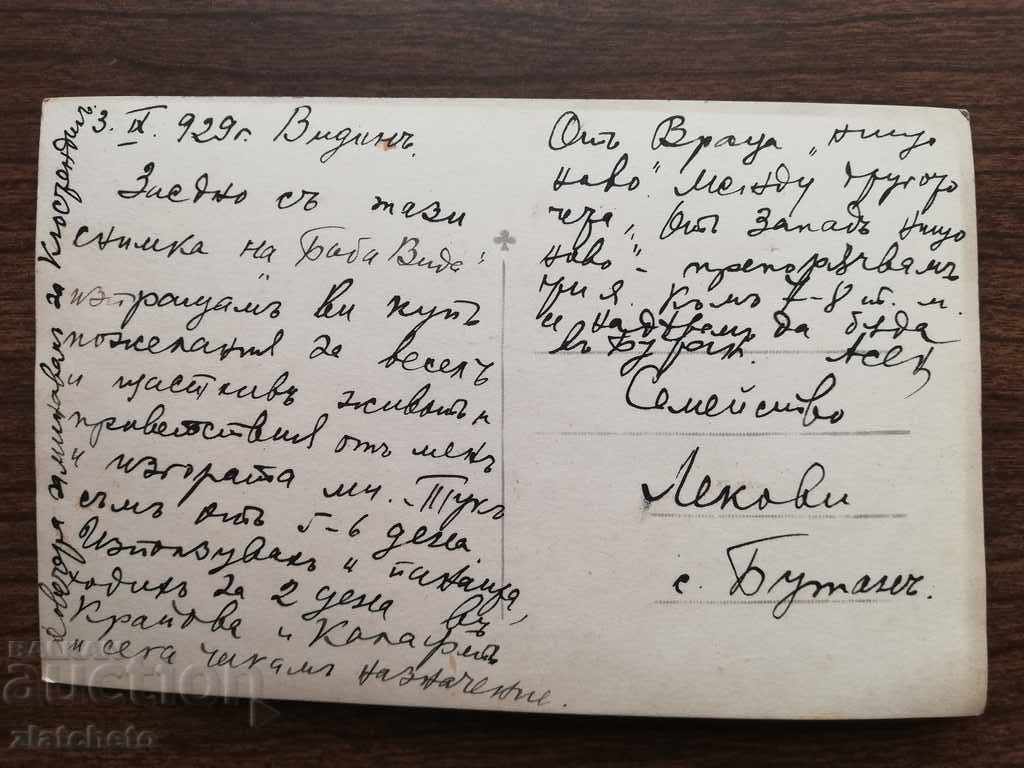 3. IX. 929 г. Видинъ.
Заедно съ тази
снимка на "Баба Вида"
изпращамъ ви купъ
пожелания за веселъ
и щастливъ животъ и
приветствия отъ менъ
и изгората ми. - Тукъ
съмъ отъ 5-6 дена.
Използувахъ и панаира,
ходихъ за 2 дена въ
Крайова и Калафатъ
и сега чакамъ назначение.
замина вамъ за Кюстендилъ.
Отъ Враца "нищо
ново". Между другото
чета "Отъ Западъ нищо
ново" - препоръчвамъ
ви я. Къмъ 7-8 т. м.
се надевамъ да бѫда
въ Асен
Семейство
Лекови
с. Бутанъ.
auction
zlatcheto